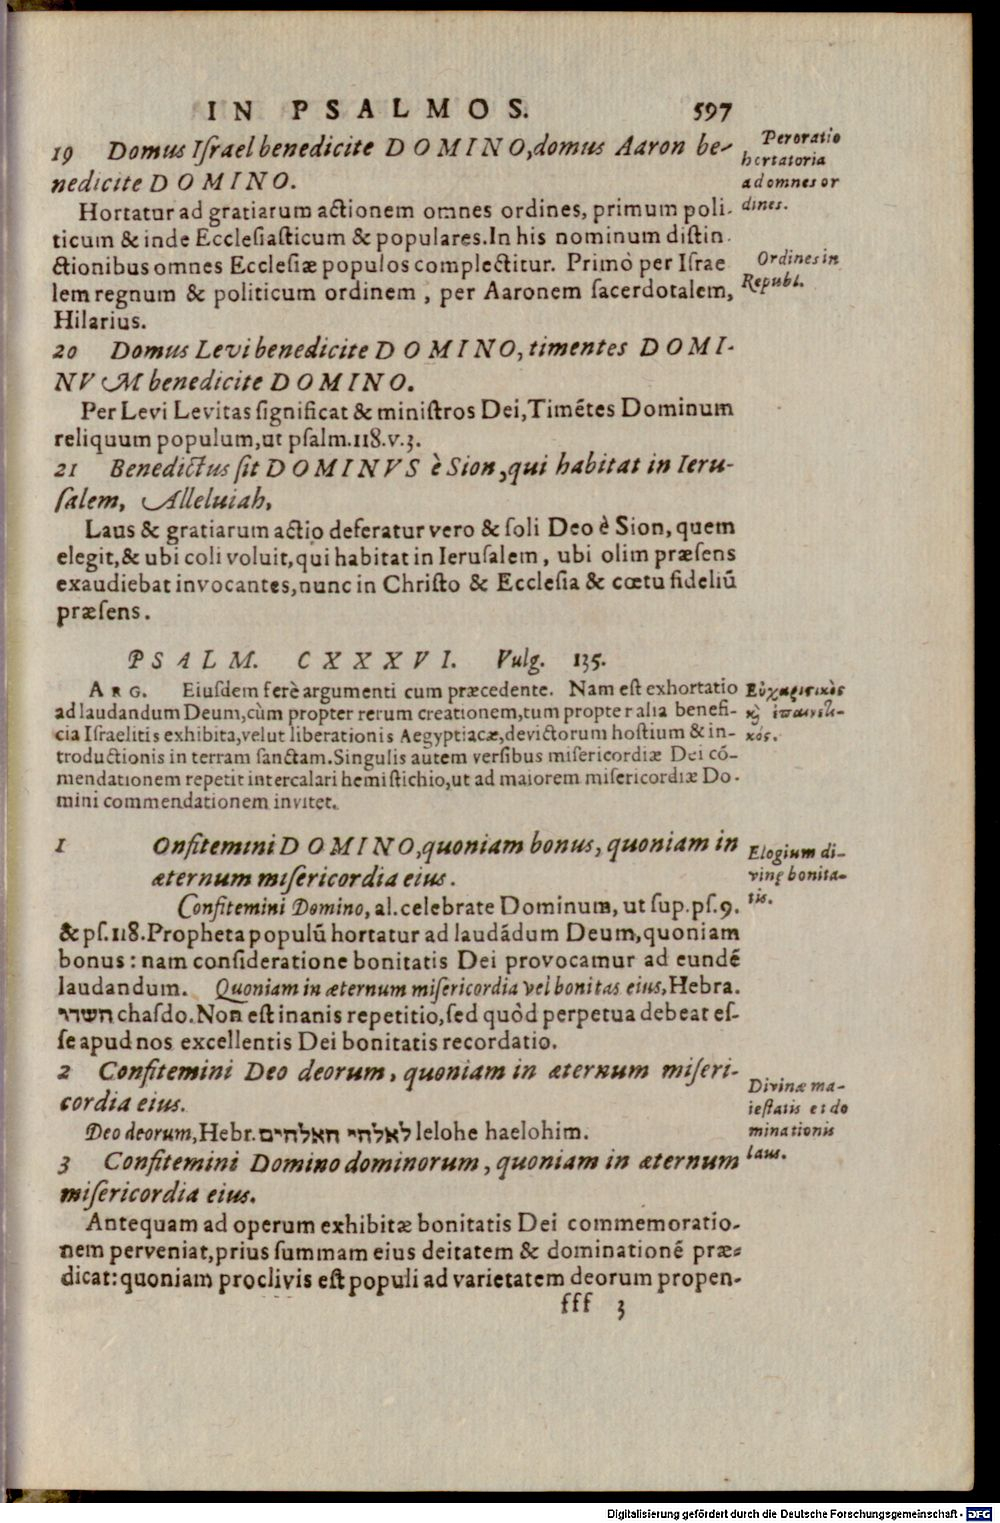 IN PSALMOS. 597
19 Domus Iſrael benedicite DOMINO, domus Aaron be-
nedicite DOMINO.
Peroratio
hortatoria
ad omnes or
dines.
Hortatur ad gratiarum actionem omnes ordines, primum poli-
ticum & inde Eccleſiaſticum & populares. In his nominum diſtin-
ctionibus omnes Eccleſiæ populos complectitur. Primò per Iſrae
lem regnum & politicum ordinem, per Aaronem ſacerdotalem,
Hilarius.
Ordines in
Republ.
20 Domus Levi benedicite DOMINO, timentes DOMI-
NVM benedicite DOMINO.
Per Levi Levitas ſignificat & miniſtros Dei, Timẽtes Dominum
reliquum populum, ut pſalm. 118. v. 3.
21 Benedictus ſit DOMINVS è Sion, qui habitat in Ieru-
ſalem, Alleluiah,
Laus & gratiarum actio deferatur vero & ſoli Deo è Sion, quem
elegit, & ubi coli voluit, qui habitat in Ieruſalem, ubi olim præſens
exaudiebat invocantes, nunc in Chriſto & Eccleſia & cœtu fideliũ
præſens.
PSALM. CXXXVI. Vulg. 135.
ARG. Eiuſdem ferè argumenti cum præcedente. Nam eſt exhortatio
ad laudandum Deum, cùm propter rerum creationem, tum propter alia benefi-
cia Iſraelitis exhibita, velut liberationis Aegyptiacæ, devictorum hoſtium & in-
troductionis in terram ſanctam. Singulis autem verſibus miſericordiæ Dei cõ-
mendationem repetit intercalari hemiſtichio, ut ad maiorem miſericordiæ Do-
mini commendationem invitet.
Εὐχαριστικὸς
καὶ ἐπαινετι-
κός.
1 Onfitemini DOMINO, quoniam bonus, quoniam in
æternum miſericordia eius.
Elogium di-
vinę bonita-
tis.
Confitemini Domino, al. celebrate Dominum, ut ſup. pſ. 9.
& pſ. 118. Propheta populũ hortatur ad laudãdum Deum, quoniam
bonus: nam conſideratione bonitatis Dei provocamur ad eundẽ
laudandum. Quoniam in æternum miſericordia vel bonitas eius, Hebra.
חשדו chaſdo. Non eſt inanis repetitio, ſed quòd perpetua debeat eſ-
ſe apud nos excellentis Dei bonitatis recordatio.
2 Confitemini Deo deorum, quoniam in æternum miſeri-
cordia eius.
Divinæ ma-
ieſtatis et do
minationis
laus.
Deo deorum, Hebr. לאלהי האלהים lelohe haelohim.
3 Confitemini Domino dominorum, quoniam in æternum
miſericordia eius.
Antequam ad operum exhibitæ bonitatis Dei commemoratio-
nem perveniat, prius ſummam eius deitatem & dominationẽ præ-
dicat: quoniam proclivis eſt populi ad varietatem deorum propen-
fff 3
Digitalisierung gefördert durch die Deutsche Forschungsgemeinschaft - DFG